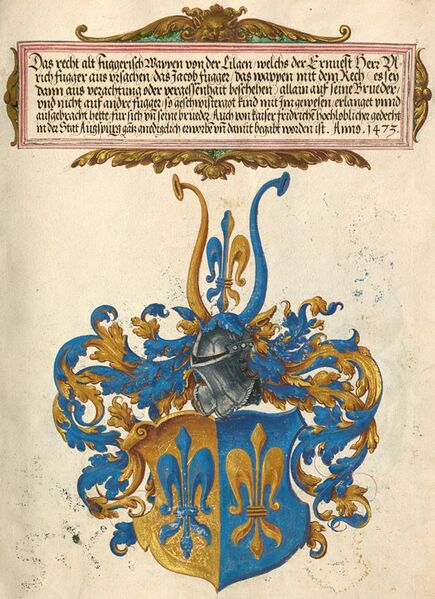 Das recht alt Fuggerisch Wappen von der Lilgen, welchs der Ernuest Herr Ul
rich fugger aus vrsachen das Jacob fugger, das wappen mit dem Rech, es sey
dann aus verachtung oder vergessenhait beschehen, allain auf seine Brueder
vnd nicht auf andre fugger, so geschwistergot kind mit jm gewesen, erlanget vnnd
ausgebracht hette, für sich vn̄ seine brueder, Auch von kaiser fridrichn̄ hochloblicher gedecht
in der Stat Augspurg gātz gnedigelich erworbē vn̄ damit begabt worden ist. Anno. 1473